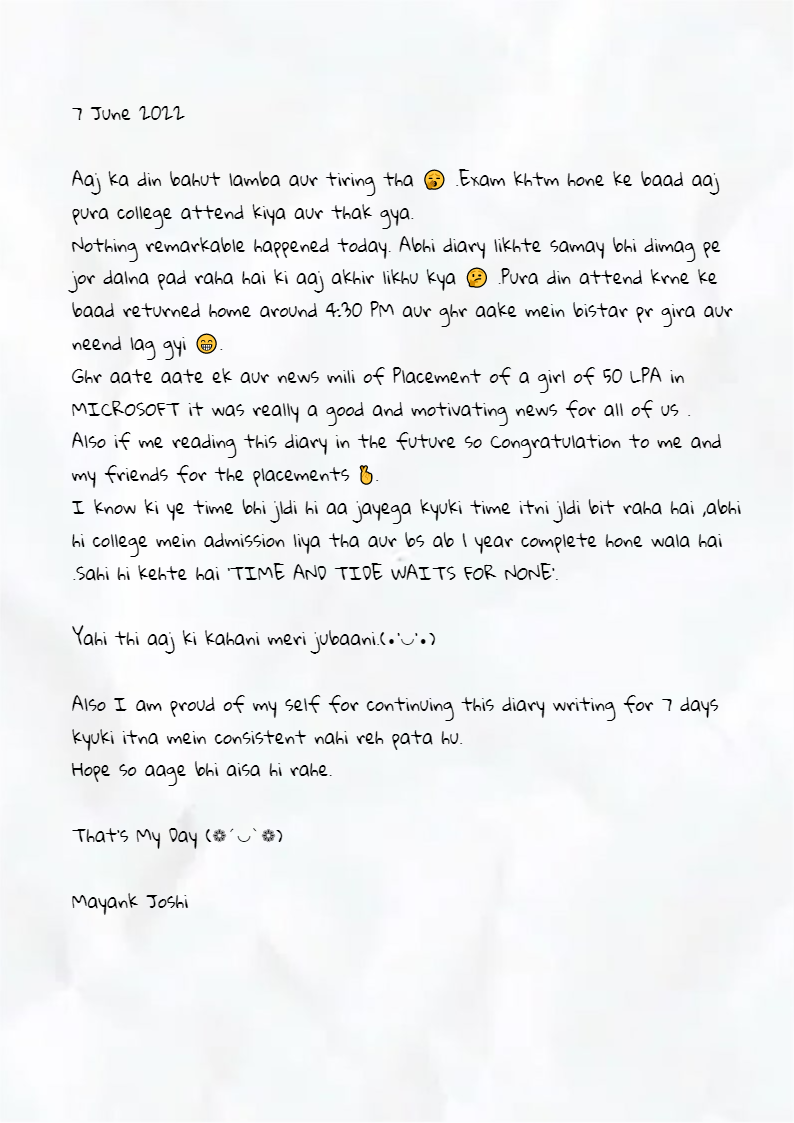 7 June 2022
Aaj ka din bahut lamba aur tiring tha 🥱 .Exam khtm hone ke baad aaj
pura college attend kiya aur thak gya.
Nothing remarkable happened today. Abhi diary likhte samay bhi dimag pe
jor dalna pad raha hai ki aaj akhir likhu kya 🤔 .Pura din attend krne ke
baad returned home around 4:30 PM aur ghr aake mein bistar pr gira aur
neend lag gyi 😁.
Ghr aate aate ek aur news mili of Placement of a girl of 50 LPA in
MICROSOFT it was really a good and motivating news for all of us .
Also if me reading this diary in the future so Congratulation to me and
my friends for the placements 🫰.
I know ki ye time bhi jldi hi aa jayega kyuki time itni jldi bit raha hai ,abhi
hi college mein admission liya tha aur bs ab 1 year complete hone wala hai
.Sahi hi kehte hai 'TIME AND TIDE WAITS FOR NONE'.
Yahi thi aaj ki kahani meri jubaani.(•‿•)
Also I am proud of my self for continuing this diary writing for 7 days
kyuki itna mein consistent nahi reh pata hu.
Hope so aage bhi aisa hi rahe.
That's My Day (❁´◡`❁)
Mayank Joshi